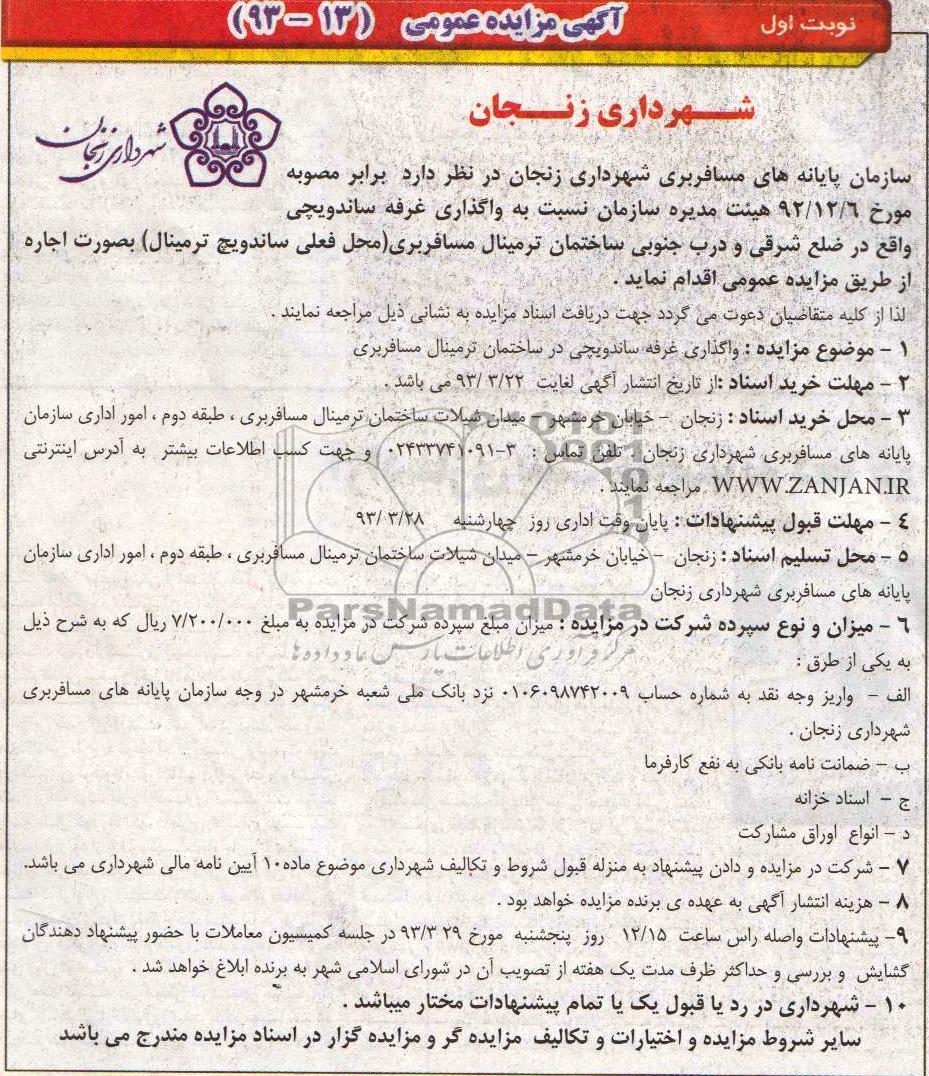 نوبت اول
آگهی مزایده عمومی (۱۳ - ۹۳)
شهرداری زنجان
شهرداری زنجان
سازمان پایانه های مسافربری شهرداری زنجان در نظر دارد برابر مصوبه
مورخ ۹۲/۱۲/۶ هیئت مدیره سازمان نسبت به واگذاری غرفه ساندویچی
واقع در ضلع شرقی و درب جنوبی ساختمان ترمینال مسافربری(محل فعلی ساندویچ ترمینال) بصورت اجاره
از طریق مزایده عمومی اقدام نماید .
لذا از کلیه متقاضیان دعوت می گردد جهت دریافت اسناد مزایده به نشانی ذیل مراجعه نمایند .
۱ - موضوع مزایده : واگذاری غرفه ساندویچی در ساختمان ترمینال مسافربری
۲ - مهلت خرید اسناد :از تاریخ انتشار آگهی لغایت ۹۳/۳/۲۲ می باشد .
۳ - محل خرید اسناد : زنجان - خیابان خرمشهر - میدان شیلات ساختمان ترمینال مسافربری ، طبقه دوم ، امور اداری سازمان
پایانه های مسافربری شهرداری زنجان . تلفن تماس : ۳-۰۲۴۳۳۷۴۱۰۹۱ و جهت کسب اطلاعات بیشتر به آدرس اینترنتی
WWW.ZANJAN.IR مراجعه نمایند .
۴ - مهلت قبول پیشنهادات : پایان وقت اداری روز چهارشنبه ۹۳/۳/۲۸
۵ - محل تسلیم اسناد : زنجان - خیابان خرمشهر - میدان شیلات ساختمان ترمینال مسافربری ، طبقه دوم ، امور اداری سازمان
پایانه های مسافربری شهرداری زنجان
ParsNamadData
مرکز فرآوری اطلاعات پارس نماد داده ها
۶ - میزان و نوع سپرده شرکت در مزایده : میزان مبلغ سپرده شرکت در مزایده به مبلغ ۷/۲۰۰/۰۰۰ ریال که به شرح ذیل
به یکی از طرق :
الف - واریز وجه نقد به شماره حساب ۰۱۰۶۰۹۸۷۴۲۰۰۹ نزد بانک ملی شعبه خرمشهر در وجه سازمان پایانه های مسافربری
شهرداری زنجان .
ب - ضمانت نامه بانکی به نفع کارفرما
ج - اسناد خزانه
د - انواع اوراق مشارکت
۷ - شرکت در مزایده و دادن پیشنهاد به منزله قبول شروط و تکالیف شهرداری موضوع ماده۱۰ آیین نامه مالی شهرداری می باشد.
۸ - هزینه انتشار آگهی به عهده ی برنده مزایده خواهد بود .
۹- پیشنهادات واصله راس ساعت ۱۲/۱۵ روز پنجشنبه مورخ ۹۳/۳/۲۹ در جلسه کمیسیون معاملات با حضور پیشنهاد دهندگان
گشایش و بررسی و حداکثر ظرف مدت یک هفته از تصویب آن در شورای اسلامی شهر به برنده ابلاغ خواهد شد .
۱۰ - شهرداری در رد یا قبول یک یا تمام پیشنهادات مختار میباشد .
سایر شروط مزایده و اختیارات و تکالیف مزایده گر و مزایده گزار در اسناد مزایده مندرج می باشد